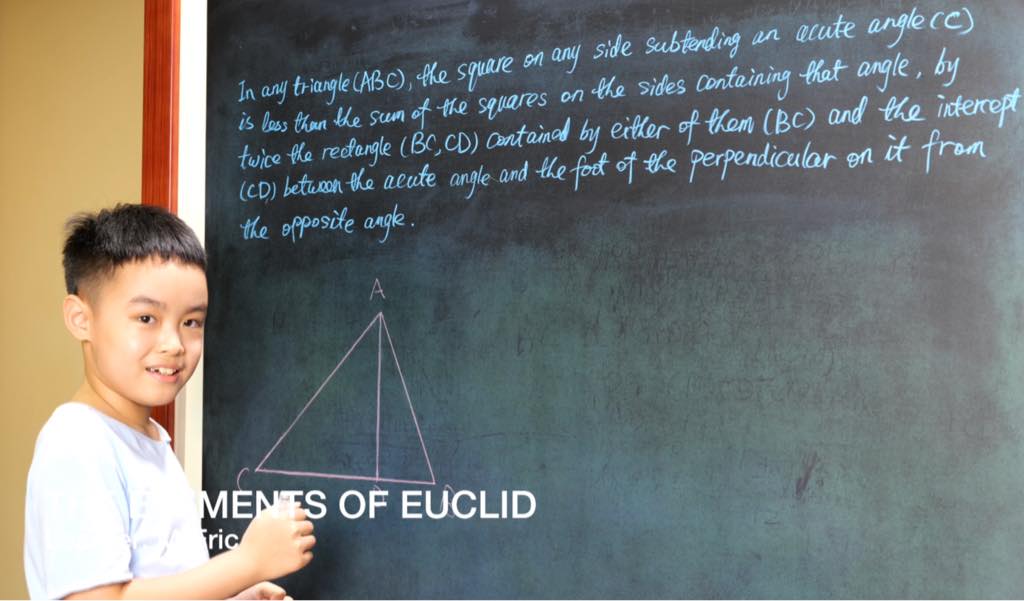 In any triangle (ABC), the square on any side subtending an acute angle (C)
is less than the sum of the squares on the sides containing that angle, by
twice the rectangle (BC, CD) contained by either of them (BC) and the intercept
(CD) between the acute angle and the foot of the perpendicular on it from
the opposite angle.
A
C
OF EUCLID
Eric